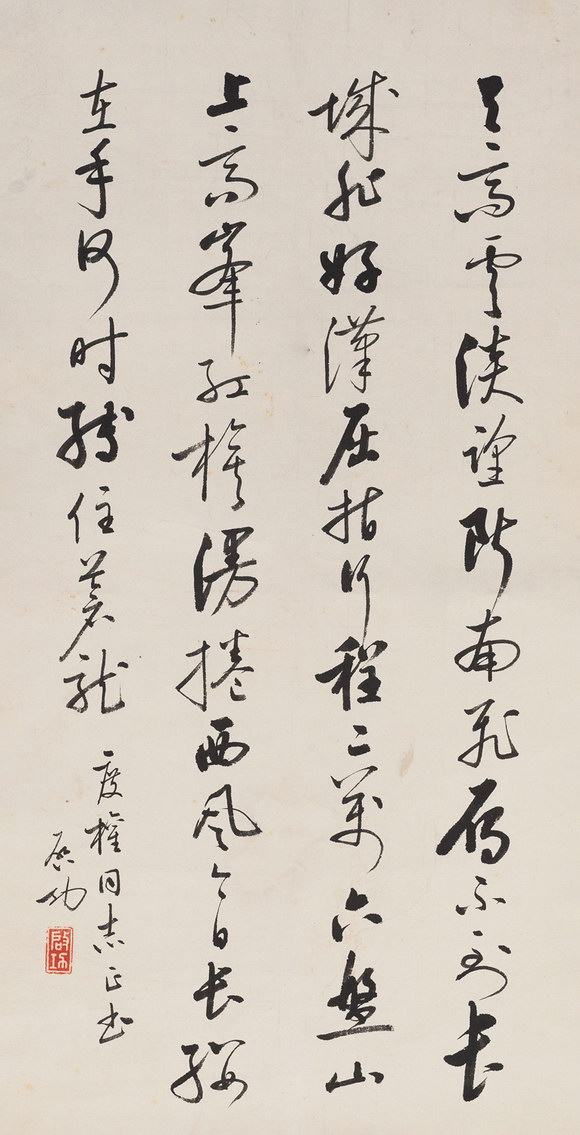 天高雲淡望断南飛雁不到长
城非好漢屈指行程二萬六盤山
上高峯红旗漫捲西风今日长缨
在手何时缚住蒼龍
度權同志正书
启功
啟功